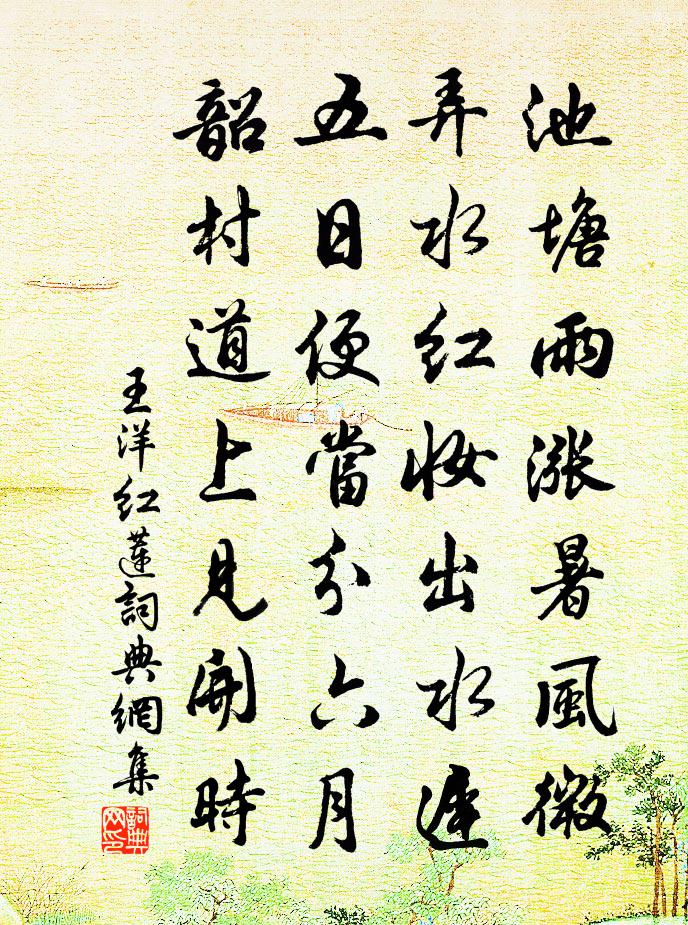 池塘雨漲暑風微
弄水红妝出水遲
五日便當分六月
韶村道上見開時
王洋红蓮詞典網集
詞典网印